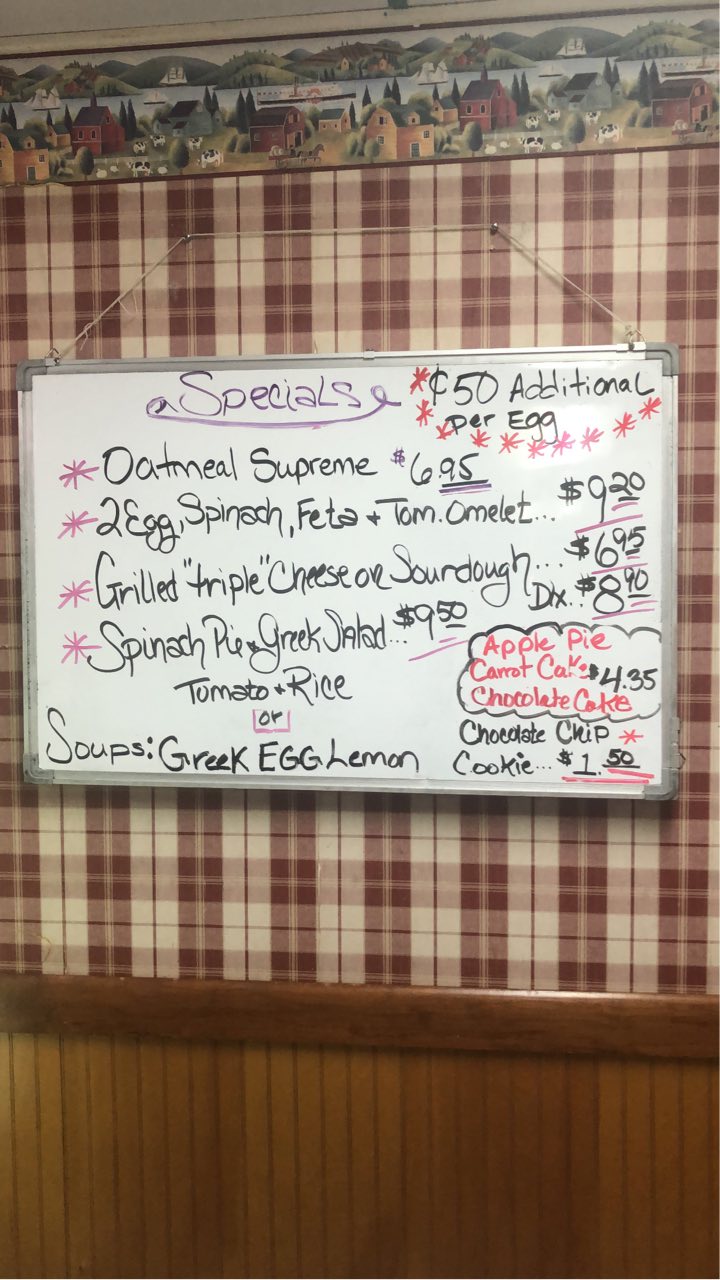 Specials
¢50 Additional
per Egg
Oatmeal Supreme $6.95
2 Egg, Spinach, Feta + Tom. Omelet... $9.20
Grilled "triple" Cheese on Sourdough... $6.95
Dx.. $8.90
Spinach Pie + Greek Salad... $9.50
Apple Pie
Carrot Cake $4.35
Chocolate Cake
Tomato + Rice
or
Soups: Greek EGG Lemon
Chocolate Chip
Cookie... $1.50